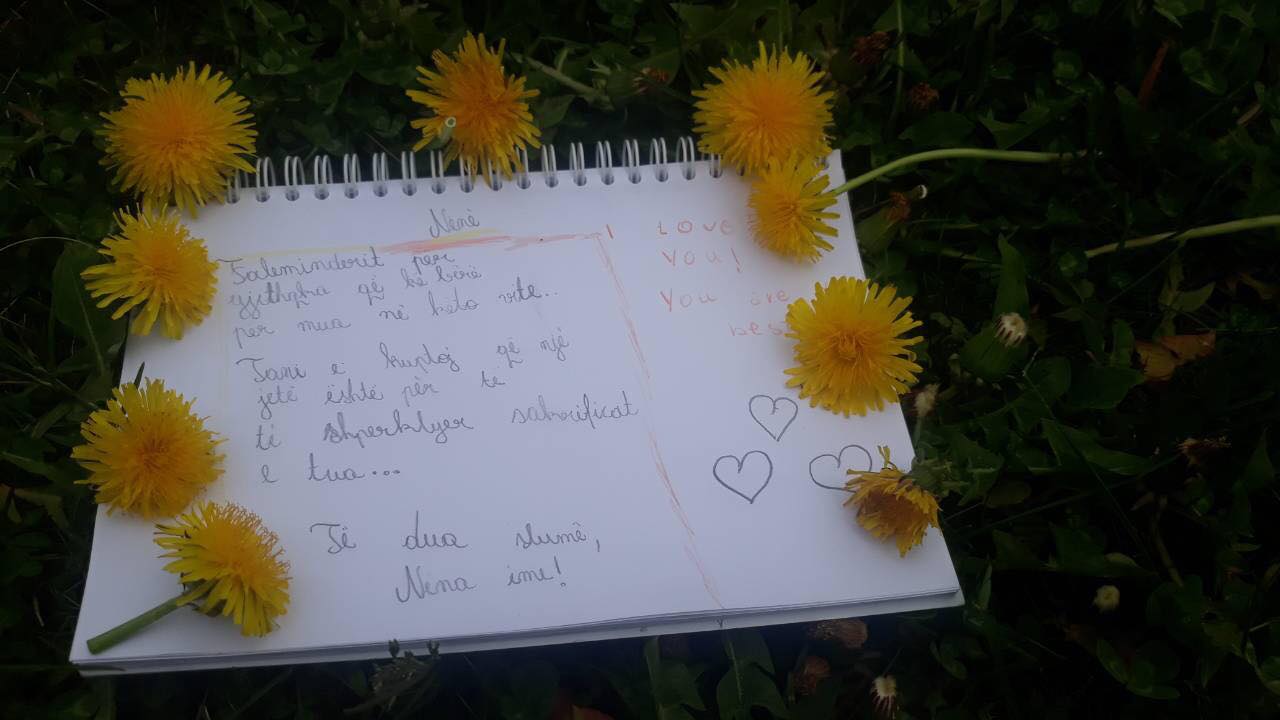 Nenë
Faleminderit per
gjithçka që ke bërë
per mua në këto vite..
Tani e kuptoj që një
jetë është për të
ti shperblyer sakrificat
e tua...
Të dua shumë,
Nëna ime!
I LOVE
YOU!
You are
bes